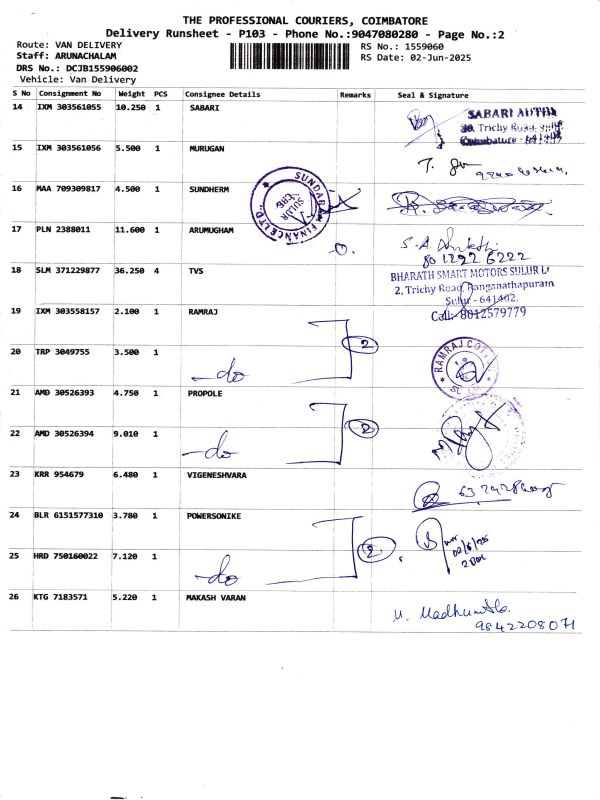 THE PROFESSIONAL COURIERS, COIMBATORE
Delivery Runsheet - P103 - Phone No.:9047080280 - Page No.:2
Route: VAN DELIVERY
RS No.: 1559060
Staff: ARUNACHALAM
RS Date: 02-Jun-2025
DRS No.: DCJB155906002
Vehicle: Van Delivery
S No Consignment No Weight PCS Consignee Details Remarks Seal & Signature
14 IXM 303561055 10.250 1 SABARI
SABARI AUTHA
Trichy Road,
Coimbatore
15 IXM 303561056 5.500 1 MURUGAN
16 MAA 709309817 4.500 1 SUNDHERM
SUNDARAM FINANCE LTD.
SULUR
17 PLN 2388011 11.600 1 ARUMUGHAM
S.A.
80 1292 6222
18 SLM 371229877 36.250 4 TVS
BHARATH SMART MOTORS SULUR
2, Trichy Road, Ranganathapuram
Sulur - 641402.
Cell: 8012579779
19 IXM 303558157 2.100 1 RAMRAJ
2
20 TRP 3049755 3.500 1
-do
RAMRAJ COTTON
21 AMD 30526393 4.750 1 PROPOLE
2
22 AMD 30526394 9.010 1
-do
23 KRR 954679 6.480 1 VIGENESHVARA
24 BLR 6151577310 3.780 1 POWERSONIKE
2
02/6/25
25 HRD 750160022 7.120 1
-do
2 Box
26 KTG 7183571 5.220 1 MAKASH VARAN
M. Madhumitha.
9842208071